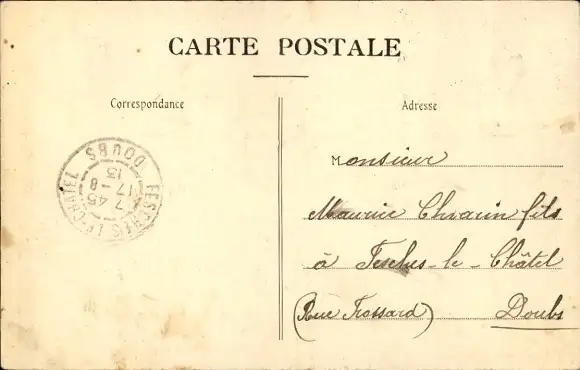 CARTE POSTALE
Correspondance
Adresse
FESCHES LE CHATEL
7 45
17 - 8
13
DOUBS
Monsieur
Maurice fils
à Fesches-le-Châtel
(Rue Frossard) Doubs